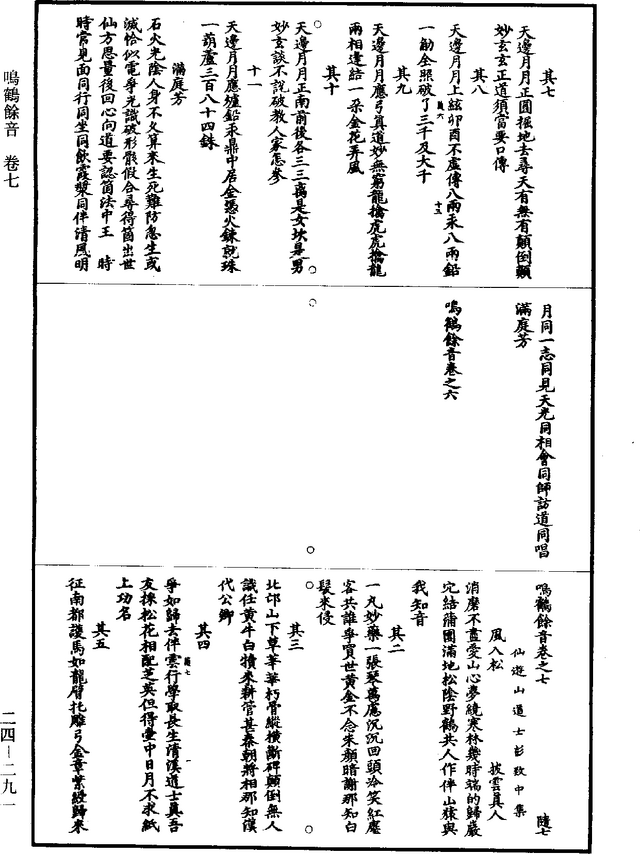 鳴鶴餘音　卷七
二四－二九一
其七
天邊月月正圓掘地去尋天有無有顛倒顛
妙玄玄正道須當要口傳
其八
天邊月月上絃卯酉不虛傳八兩汞八兩鉛
一斤全照破了三千及大千
其九
天邊月月應弓真道妙無窮龍擒虎虎擒龍
兩相逢結一朵金花弄風
其十
天邊月月正南前後各三三离是女坎是男
妙玄談不說破教人家怎參
十一
天邊月月應爐鉛汞鼎中居金憑火鍊就珠
一葫蘆三百八十四銖
滿庭芳
石火光陰人身不久算來生死難防忽生或
滅恰似電爭光識破形骸假合尋得箇出世
仙方思量後回心向道要認箇法中王　時
時常見面同行同坐同飲霞漿同伴清風明
月同一志同見天光同相會同師訪道同唱
滿庭芳
鳴鶴餘音卷之六
鳴鶴餘音卷之七　隨七
仙遊山道士彭致中集
風入松　披雲真人
消磨不盡愛山心夢繞寒林幾時端的歸巖
完結蒲團滿地松陰野鶴共人作伴山猿與
我知音
其二
一丸妙藥一張琴萬慮沉沉回頭冷笑紅塵
客共誰爭買世黃金不念朱顏暗謝那知白
髮來侵
其三
北邙山下草萋萋朽骨縱橫斷碑顛倒無人
識任黃牛白犢來耕管甚秦朝將相那知漢
代公卿
其四
爭如歸去伴雲行學取長生清溪道士真吾
友揀松花相配芝英但得壺中日月不求紙
上功名
其五
征南都護馬如龍臂托雕弓金章紫綬歸來